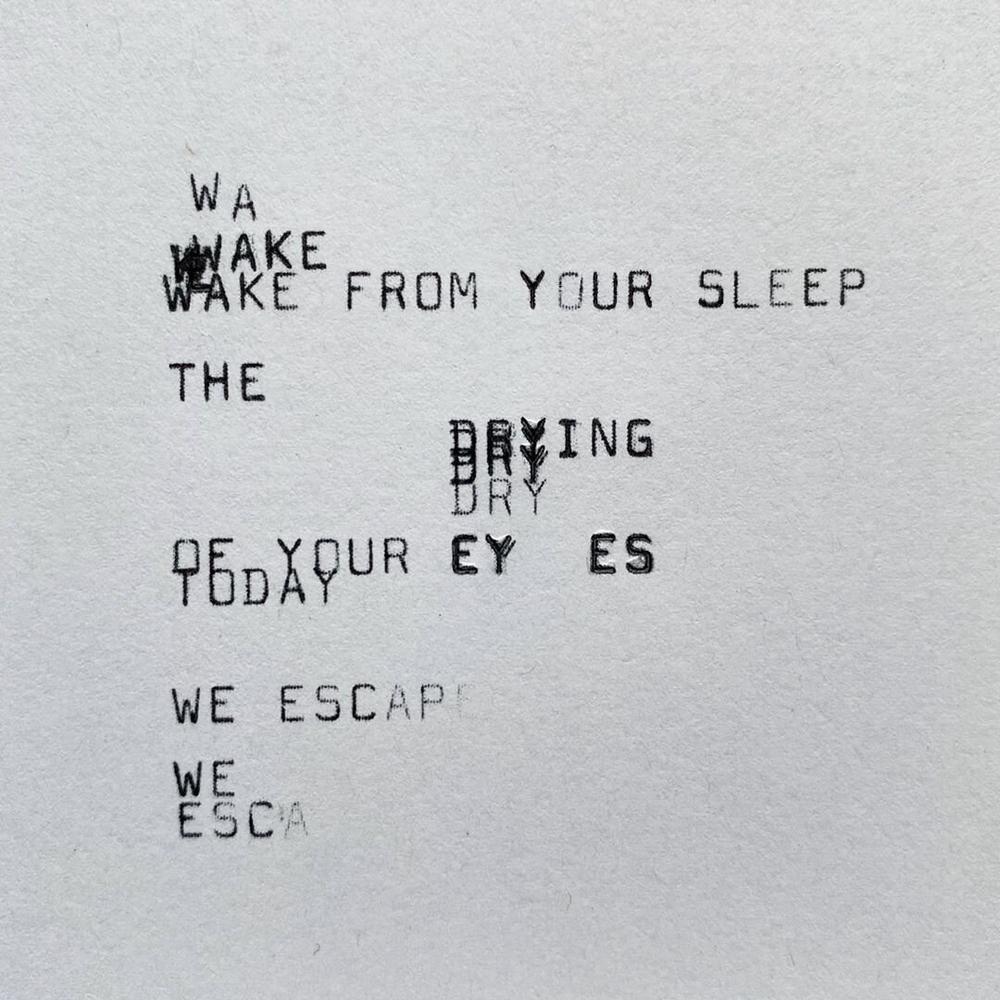 WA
WAKE
WAKE FROM YOUR SLEEP
THE
DRYING
DRY
DRY
OF YOUR EY ES
TODAY
WE ESCAPE
WE
ESCA